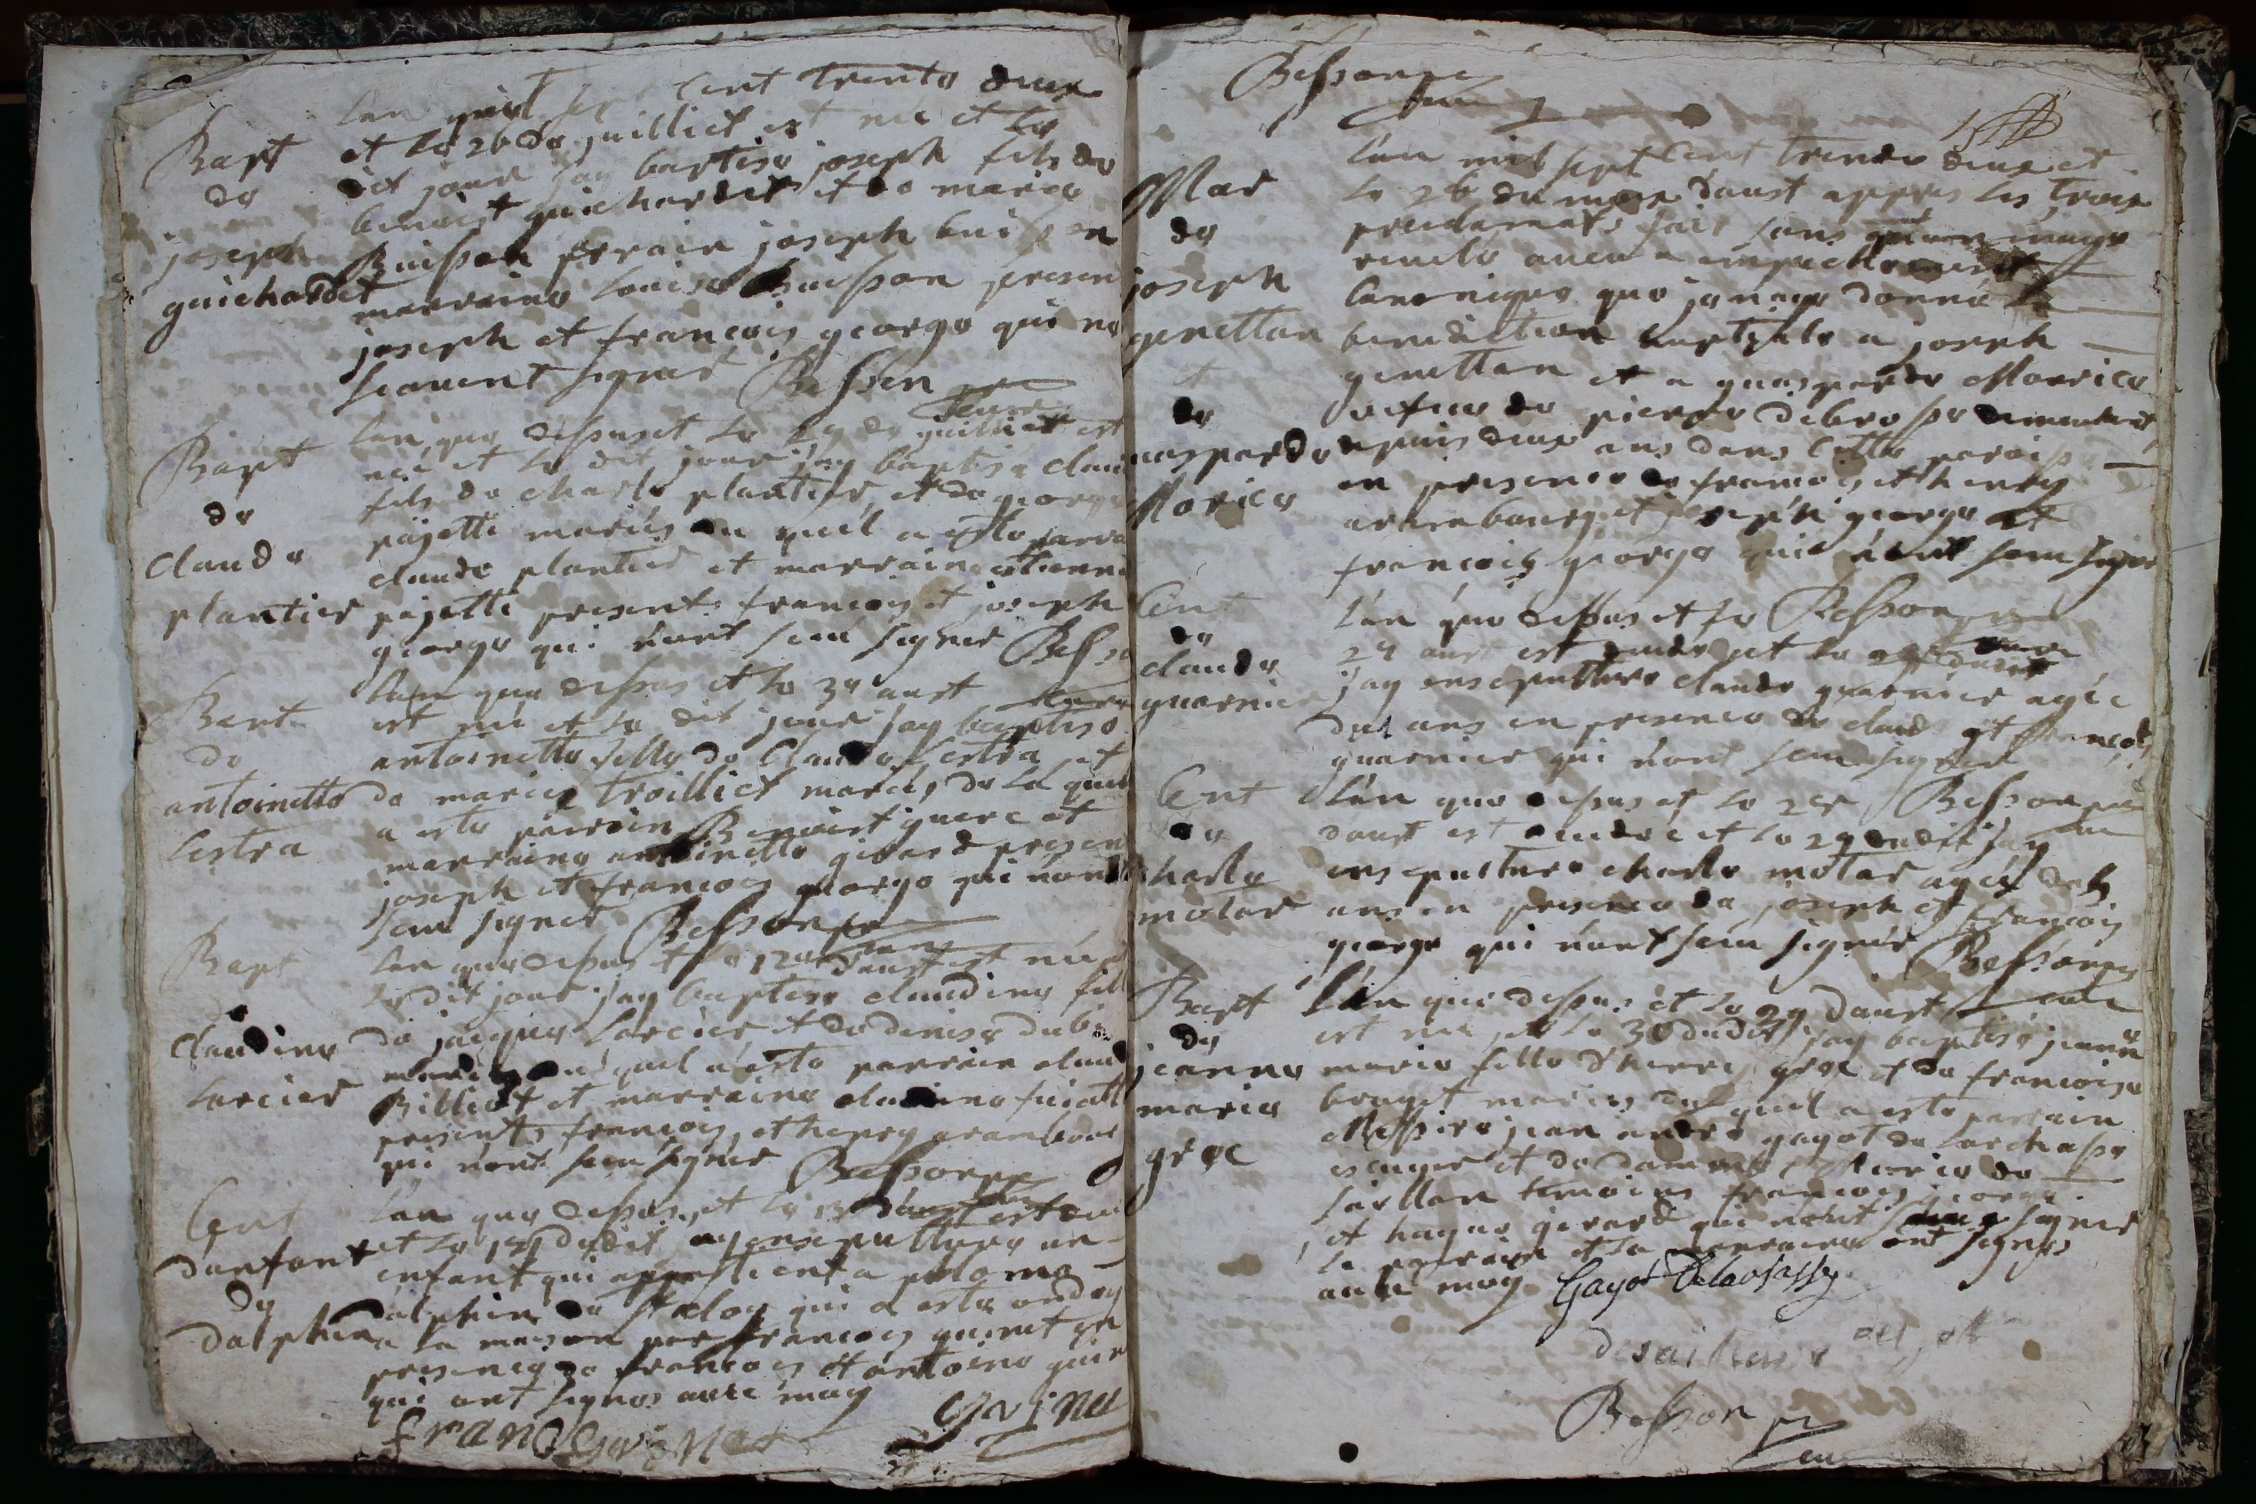 Bapt
de
joseph
guichardet
lan mil sept cent trente deux
et le 26 de juilliet est né et le
dit jour jay baptisé joseph fils de
benoist guichardet et de marie
Buisson parrain joseph buisson
marraine louise Buisson presen
joseph et francois george qui ne
scavent signer Besson
Bapt
de
Claude
plantier
lan que dessus et le 29 de juilliet est
né et le dit jour jay baptisé clau
fils de charle plantier et de george
pajetti mariés du quel a esté parra
claude plantier et marraine etienne
pajetti presents francois et joseph
george qui nont sceu signer Besso
Bapt
de
antoinette
lestra
lan que dessus et le 3e aust
est né et le dit jour jay baptisé
antoinette fille de Claude Lestra et
de marie Troilliet mariés de la quel
a esté parrain Benoist guere et
marraine antoinette girard presen
joseph et francois george qui nont
sceu signer Besson
Bapt
de
Claudine
Larcier
lan que dessus et le 12e daust est né et
le dit jour jay baptisé claudine fill
de jacque Larcier et de denise dub
mariés du quel a esté parrain claud
Billiot et marraine claudine
presents francois et henry arambour
qui nont sceu signer Besson
Ent
danfant
de
dalphin
lan que dessus et le 13 daust est
et le 14 dudit ay ensepulturé un
enfant qui appartient a
dalphin de qui a esté ondoy
a la maison par francois guinet en
presence de francois et antoine guin
qui ont signés avec moy
franc Gvinet Gvinet
Besson
cure
Mar
de
joseph
genettan
et
de
guasparde
Morice
lan mil sept cent trente deux et
le 26 du mois daust appres les trois
proclamats fait sans
revele aucun empechement
canonique que je naye donné la
benediction nuptiale a joseph
genettan et a guasparde Morice
vefue de pierre debrosse demeurant
depuis deux ans dans cette parois
en presence de francois et henry
arambourg et joseph george et
francois george qui nont sceu signer
Ent
de
claude
guarnier
lan que dessus et le Besson
24 aust est et le 25 dudit
jay ensepulturé claude guarnier agée
dix ans en presence de claud et francois
guarnier qui nont sceu signer
Ent
de
charle
molar
lan que dessus et le 28 Besson
daust est et le 29 dudit jay
ensepulturé charle molar agé de 5
ans en presence de joseph et francois
george qui nont sceu signer Besson
Bapt
de
jeanne
marie
gros
lan que dessus et le 29 daust
est née et le 30 dudit jay baptisé jeanne
marie fille dhenry gros et de francoise
brayet mariés du quel a esté parrain
Messire jean andre gayot de larchasse
escuyer et de damoiselle Marie de
temoins francois george
et hugue girard qui nont sceu signer
le parrain et la marraine ont signés
avec moy Gayot Delachasse
Besson
cure